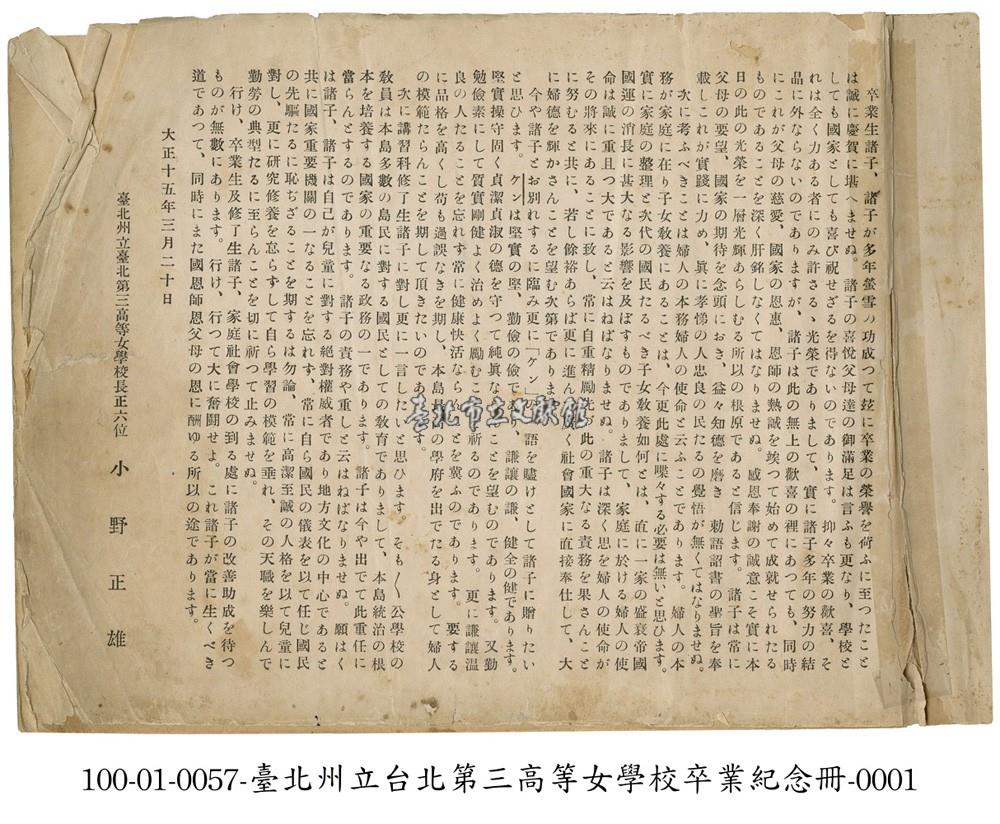 卒業生諸子、諸子が多年螢雪の功成つて玆に卒業の榮譽を荷ふに至つたこと
は誠に慶賀に堪へませぬ。諸子の喜悅父母達の御滿足は言ふも更なり、學校と
しても國家としても喜び祝せざるを得ないのであります。抑々卒業の歡喜、そ
れは全く力ある者にのみ許さる、光榮でありまして、實に諸子多年の努力の結
品に外ならないのでありますが、諸子は此の無上の歡喜の裡にあつても、同時
にこれが父母の慈愛、國家の恩惠、恩師の熱誠を俟つて始めて成就せられたる
ものであることを深く肝銘しなくてはなりませぬ。感恩奉謝の誠意こそ實に本
日の此の光榮を一層光輝あらしむる所以の根原であると信じます。諸子は常に
父母の要望、國家の期待を念頭におき、益々知德を磨き、勅語詔書の聖旨を奉
載しこれが實踐に力め、眞に孝悌の人忠良の民たるの覺悟が無くてはなりませぬ。
次に考ふべきことは婦人の本務婦人の使命と云ふことであります。婦人の本
務が家庭に在り子女敎養にあることは、今更此處に喋々する必要は無いと思ひます。
實に家庭の整理と次代の國民たるべき子女敎養如何とは、直に一家の盛衰帝國
國運の消長に甚大なる影響を及ぼすものでありまして、家庭に於ける婦人の使
命は誠に重且つ大であると云はねばなりませぬ。諸子は深く思を婦人の使命が
その將來にあることに致し、常に自重精勵先づ此の重大なる責務を果さんこと
に努むると共に、若し餘裕あらば更に進んで廣く社會國家に直接奉仕して、大
に婦德を輝かさんことを望む次第であります
今や諸子とお別れするに臨み更に「ケン」 語を贐けとして諸子に贈りたい
と思ひます。ケンは堅實の堅、勤儉の儉で 、謙讓の謙、健全の健であります。
堅實操守固く貞潔貞淑の德を守つて純眞な ことを望むのであります。又勤
勉儉素にして質實剛健よく治めよく勵むこ 祈るのであります。更に謙讓溫
良の人たることを忘れず常に健康快活なら とを冀ふのであります。要する
に品格を高くし苟も過誤なきを期し、本島 の學府を出でたる身として婦人
の模範たらんことを期して頂きたいのであ す。
次に講習科修了生諸子に對し更に一言したいと思ひます。そも〱公學校の
敎員は本島多數の島民に對する國民としての敎育でありまして、本島統治の根
本を培養する國家の重要なる政務の一であります。諸子は今や出でて此重任に
當らんとするのであります。諸子の責務や重しと云はねばなりませぬ。願はく
は諸子、諸子は自己が兒童に對する絕對權威者であり地方文化の中心であると
共に國家重要機關の一なることを忘れず、常に自ら國民の儀表を以て任じ國民
の先驅たるに恥ぢざることを期するは勿論、常に高潔至誠の人格を以て兒童に
對し、更に硏究修養を怠らずして自ら學習の模範を垂れ、その天職を樂しんで
勤勞の典型たるに至らんことを切に祈つて止みませぬ。
行け、卒業生及修了生諸子、家庭社會學校の到る處に諸子の改善助成を待つ
ものが無數にあります。行け、行つて大に奮鬪せよ。これ諸子が當に生くべき
道であつて、同時にまた國恩師恩父母の恩に酬ゆる所以の途であります。
大正十五年三月二十日
臺北州立臺北第三高等女學校長正六位 小野正雄
臺北市立文獻館
100-01-0057-臺北州立台北第三高等女學校卒業紀念冊-0001